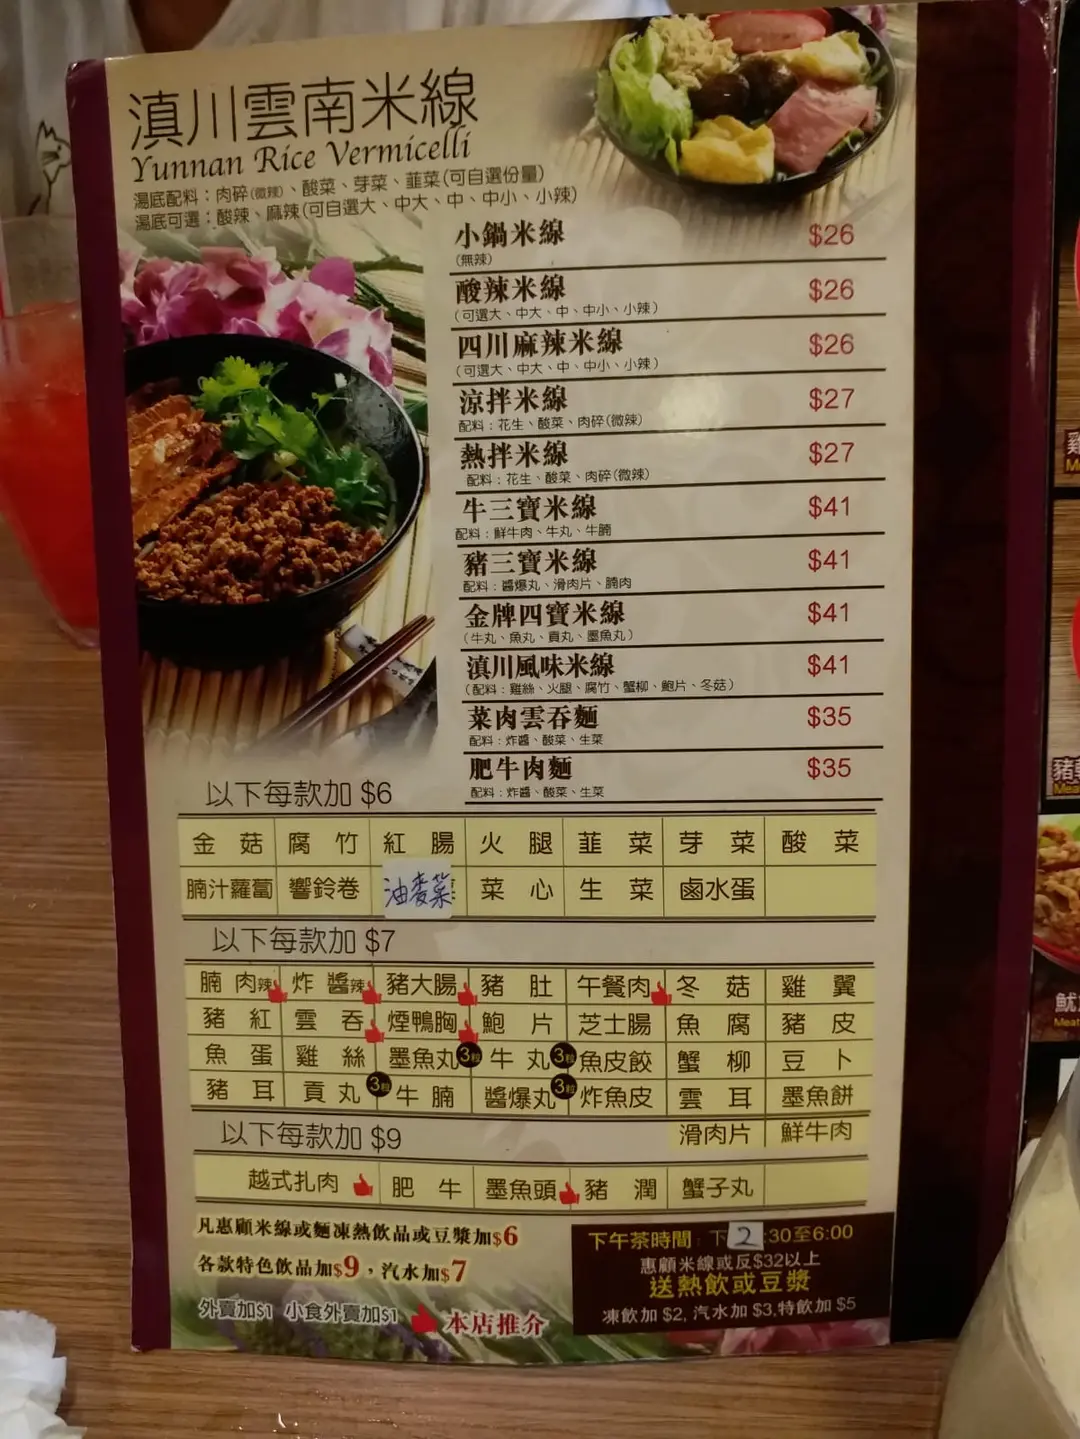 滇川雲南米線
Yunnan Rice Vermicelli
湯底配料：肉碎(微辣)、酸菜、芽菜、韮菜(可自選份量)
湯底可選：酸辣、麻辣(可自選大、中大、中、中小、小辣)
小鍋米線 $26
(無辣)
酸辣米線 $26
(可選大、中大、中、中小、小辣)
四川麻辣米線 $26
(可選大、中大、中、中小、小辣)
涼拌米線 $27
配料：花生、酸菜、肉碎(微辣)
熱拌米線 $27
配料：花生、酸菜、肉碎(微辣)
牛三寶米線 $41
配料：鮮牛肉、牛丸、牛腩
豬三寶米線 $41
配料：醬爆丸、滑肉片、腩肉
金牌四寶米線 $41
(牛丸、魚丸、貢丸、墨魚丸)
滇川風味米線 $41
(配料：雞絲、火腿、腐竹、蟹柳、鮑片、冬菇)
菜肉雲吞麵 $35
配料：炸醬、酸菜、生菜
肥牛肉麵 $35
配料：炸醬、酸菜、生菜
以下每款加 $6
金菇 腐竹 紅腸 火腿 韮菜 芽菜 酸菜
腩汁蘿蔔 響鈴卷 油麥菜 菜心 生菜 鹵水蛋
以下每款加 $7
腩肉辣 炸醬辣 豬大腸 豬肚 午餐肉 冬菇 雞翼
豬紅 雲吞 煙鴨胸 鮑片 芝士腸 魚腐 豬皮
魚蛋 雞絲 墨魚丸 3粒 牛丸 3粒 魚皮餃 蟹柳 豆卜
豬耳 貢丸 3粒 牛腩 醬爆丸 3粒 炸魚皮 雲耳 墨魚餅
滑肉片 鮮牛肉
以下每款加 $9
越式扎肉 肥牛 墨魚頭 豬潤 蟹子丸
凡惠顧米線或麵凍熱飲品或豆漿加$6
各款特色飲品加$9，汽水加$7
外賣加$1 小食外賣加$1 本店推介
下午茶時間：下2:30至6:00
惠顧米線或反$32以上
送熱飲或豆漿
凍飲加 $2, 汽水加 $3,特飲加 $5